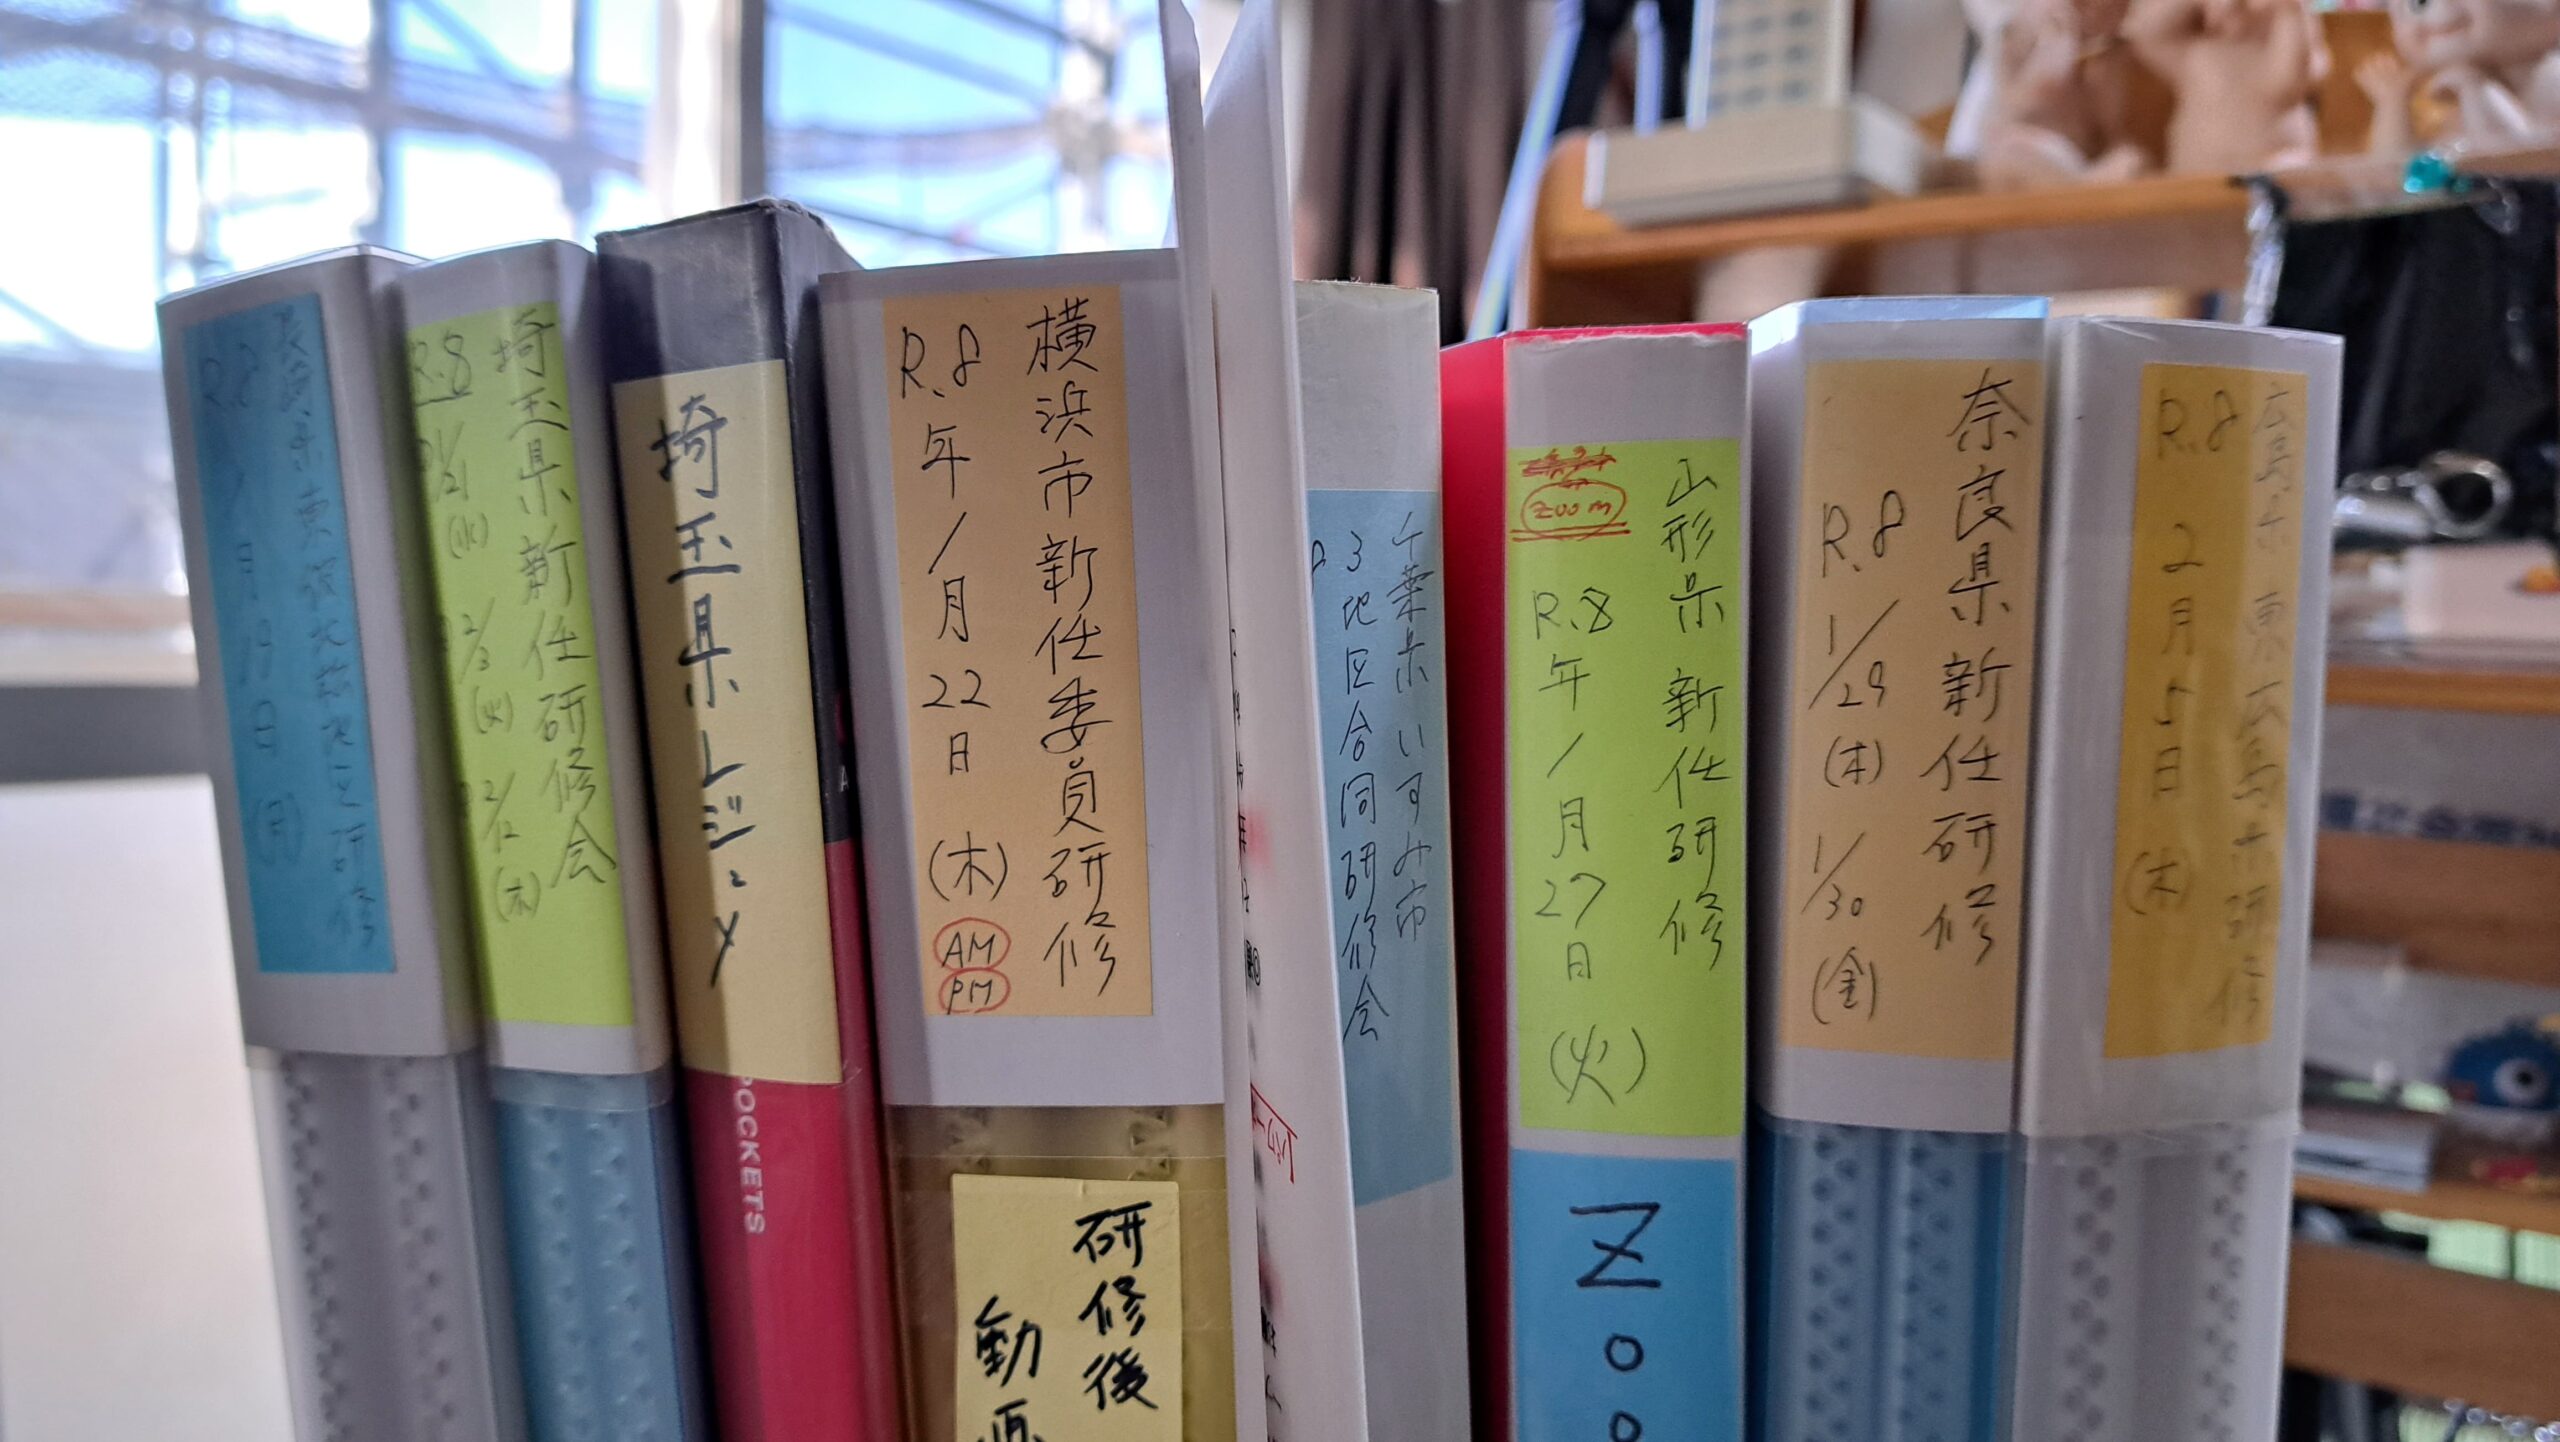 R.8
月19日(月)
埼玉県新任研修会
R.8
1/21(水)
2/3(火)
2/12(木)
埼玉県レジュメ
POCKETS
横浜市新任委員研修
R.8年1月22日(木)
AM
PM
研修後
動画
千葉県いすみ市
3地区合同研修会
山形県新任研修
Zoom
R.8年1月27日(火)
Zoo
奈良県新任研修
R.8 1/29(木) 1/30(金)
広島県東広島市研修
R.8 2月5日(木)